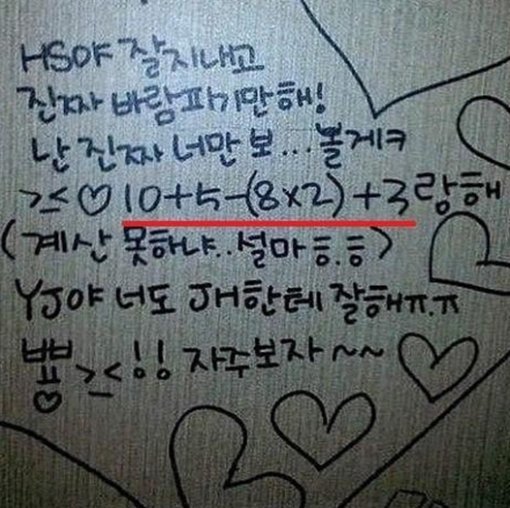 HS야 잘지내고
진짜 바람파기만해!
난 진짜 너만 보...볼게ㅋ
>≤♡10+5-(8x2)+3랑해
(계산 못하냐..설마ㅎ.ㅎ)
YJ야 너도 JH한테 잘해ㅠ.ㅠ
뿅♡>≤!! 자주보자~~